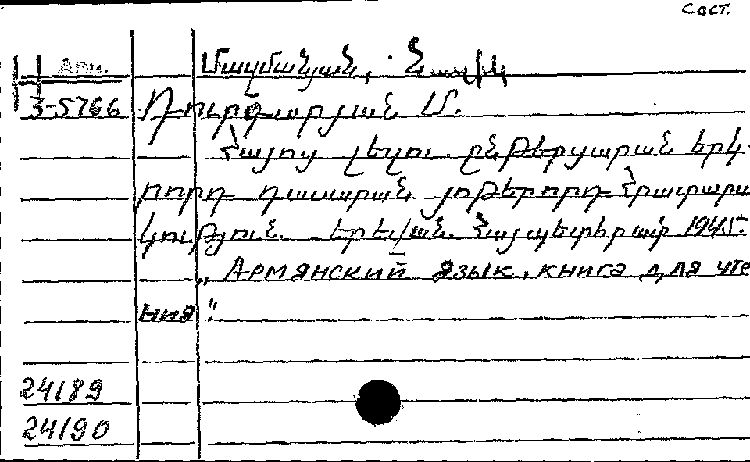 сост.
Арм.
3-5766 Դուրգարյան Մ.
Հայոց լեզու ընթերցարան երկ-
րորդ դասարան յոթերորդ հրատարա
կություն. Երևան. Հայպետհրատ 1945.
„Армянский язык, книга для чте
ния“.
24189
24190